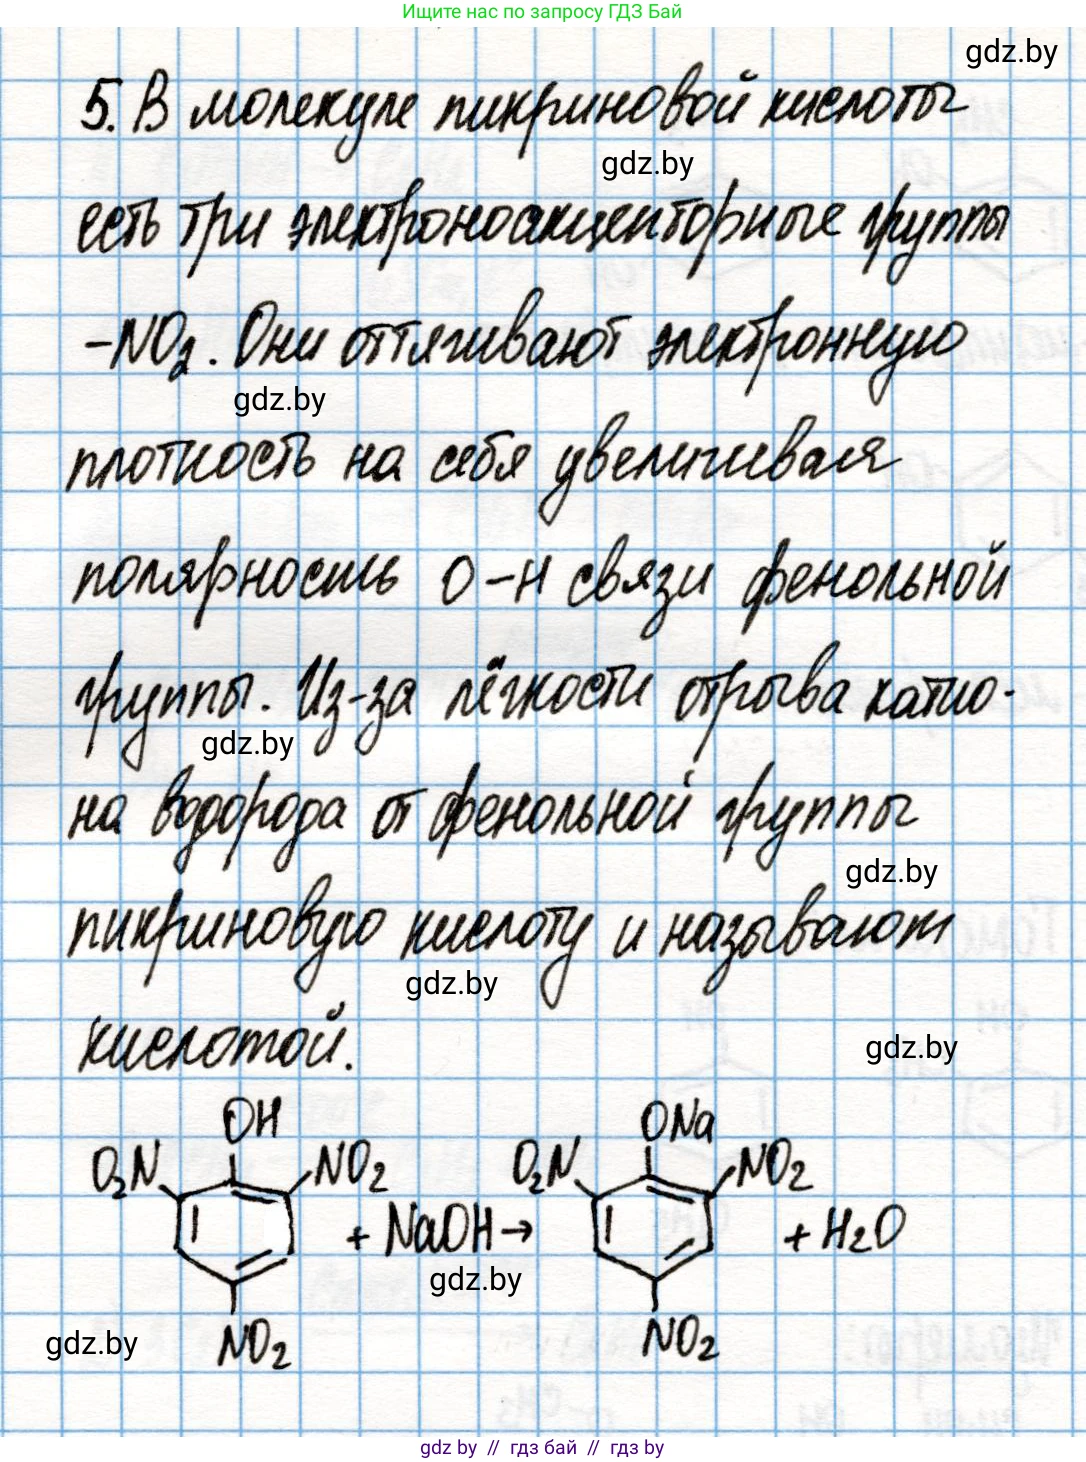 Ищите нас по запросу ГДЗ Бай
gdz.by
5. В молекуле пикриновой кислоты
gdz.by
есть три электроноакцепторные группы
-NO2. Они оттягивают электронную
gdz.by
плотность на себя увеличивая
полярность O-H связи фенольной
группы. Из-за лёгкости отрыва катио-
gdz.by
на водорода от фенольной группы
gdz.by
пикриновую кислоту и называют
gdz.by
кислотой.
gdz.by
OH ONa
O2N NO2 O2N NO2
+ NaOH → + H2O
gdz.by
gdz.by
NO2 NO2
gdz by // гдз бай // гдз by